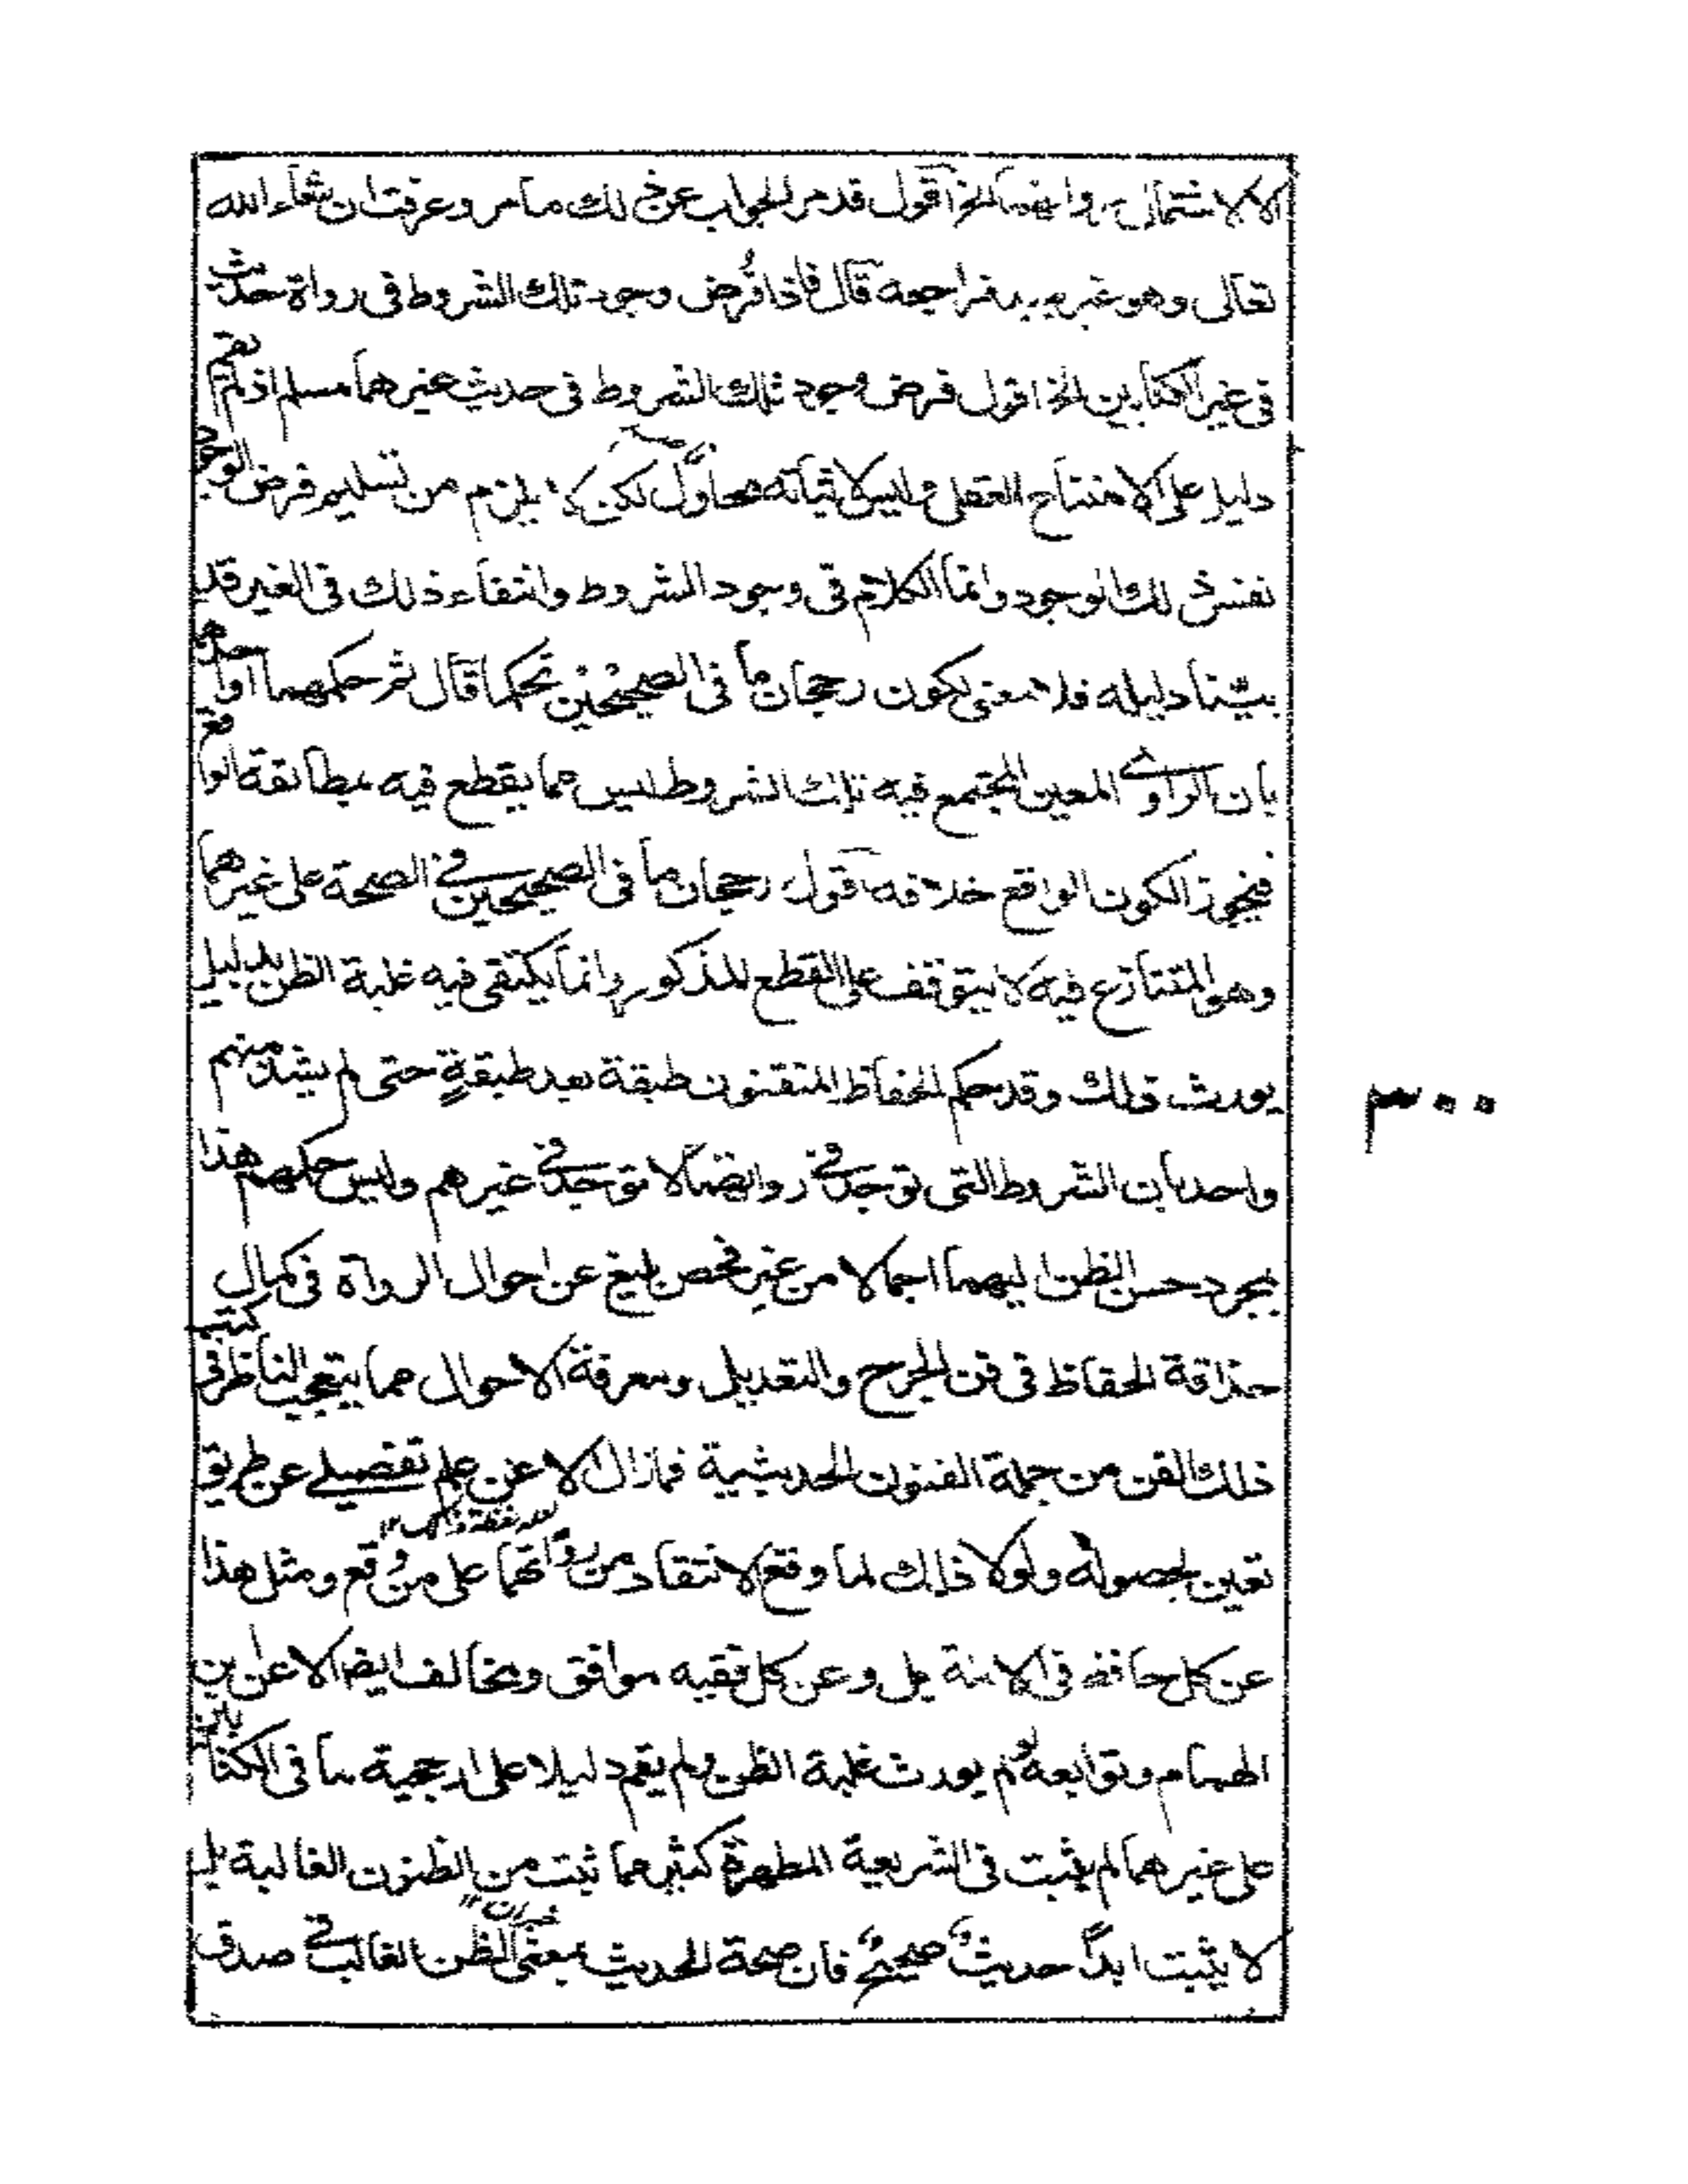 الا لاشتمال رواتهما الخ اقول قد مر الجواب عن ذلك ما مر وعرفت ان شاء الله
تعالى وهو غير بعيد فراجعه قال فاذا فرض وجود تلك الشروط فى رواة حديث
فى غير الكتابين الخ اقول فرض وجود تلك الشروط فى حديث غيرهما مسلم اذ لم نقم
دليلا على الامتناع العقلى وليس لاثباته محاول لكن لا يلزم من تسليم فرض الوجود
نفس ذلك الوجود وانما الكلام فى وجود الشروط وانتفاء ذلك فى الغير قد
بينا دليله فلا معنى لكون رجحان ما فى الصحيحين تحكما قال ثم حكمهما او احدهما
بان الراوى المعين المجتمع فيه تلك الشروط ليس مما يقطع فيه بمطابقة الواقع
فيجوز الكون الواقع خلافه اقول رجحان ما فى الصحيحين فى الصحة على غيرهما
وهو المتنازع فيه لا يتوقف على القطع المذكور وانما يكتفى فيه غلبة الظن بدليل
يورث ذلك وقد حكم الحفاظ المتقنون طبقة بعد طبقةٍ حتى لم يشذ منهم
واحد بان الشروط التى توجد فى رواتهما لا توجد فى غيرهم وليس حكمهم هذا
بمجرد حسن الظن اليهما اجمالا من غير فحص بليغ عن احوال الرواة فى كمال
حذاقة الحفاظ فى فن الجرح والتعديل ومعرفة الاحوال مما يتعجب الناظر فى كتب
ذلك الفن من جملة الفنون الحديثية فما زال الا عن علم تفصيلى عن طريق
تعين لحصوله ولولا ذلك لما وقع الانتقاد من رواتهما على من وقع ومثل هذا
عن كل حافظ فى الامة بل وعن كل فقيه موافق ومخالف ايضا الا عن ابن
الهمام وتوابعه لو لم يورث غلبة الظن ولم يقم دليلا على ارجحية ما فى الكتابين
على غيرهما لم يثبت فى الشريعة المطهرة كثير مما ثبت من الظنون الغالبة بل
لا يثبت ابدًا حديثٌ صحيحٌ فان صحة الحديث بمعنى الظن الغالب فى صدق
٣٠٠